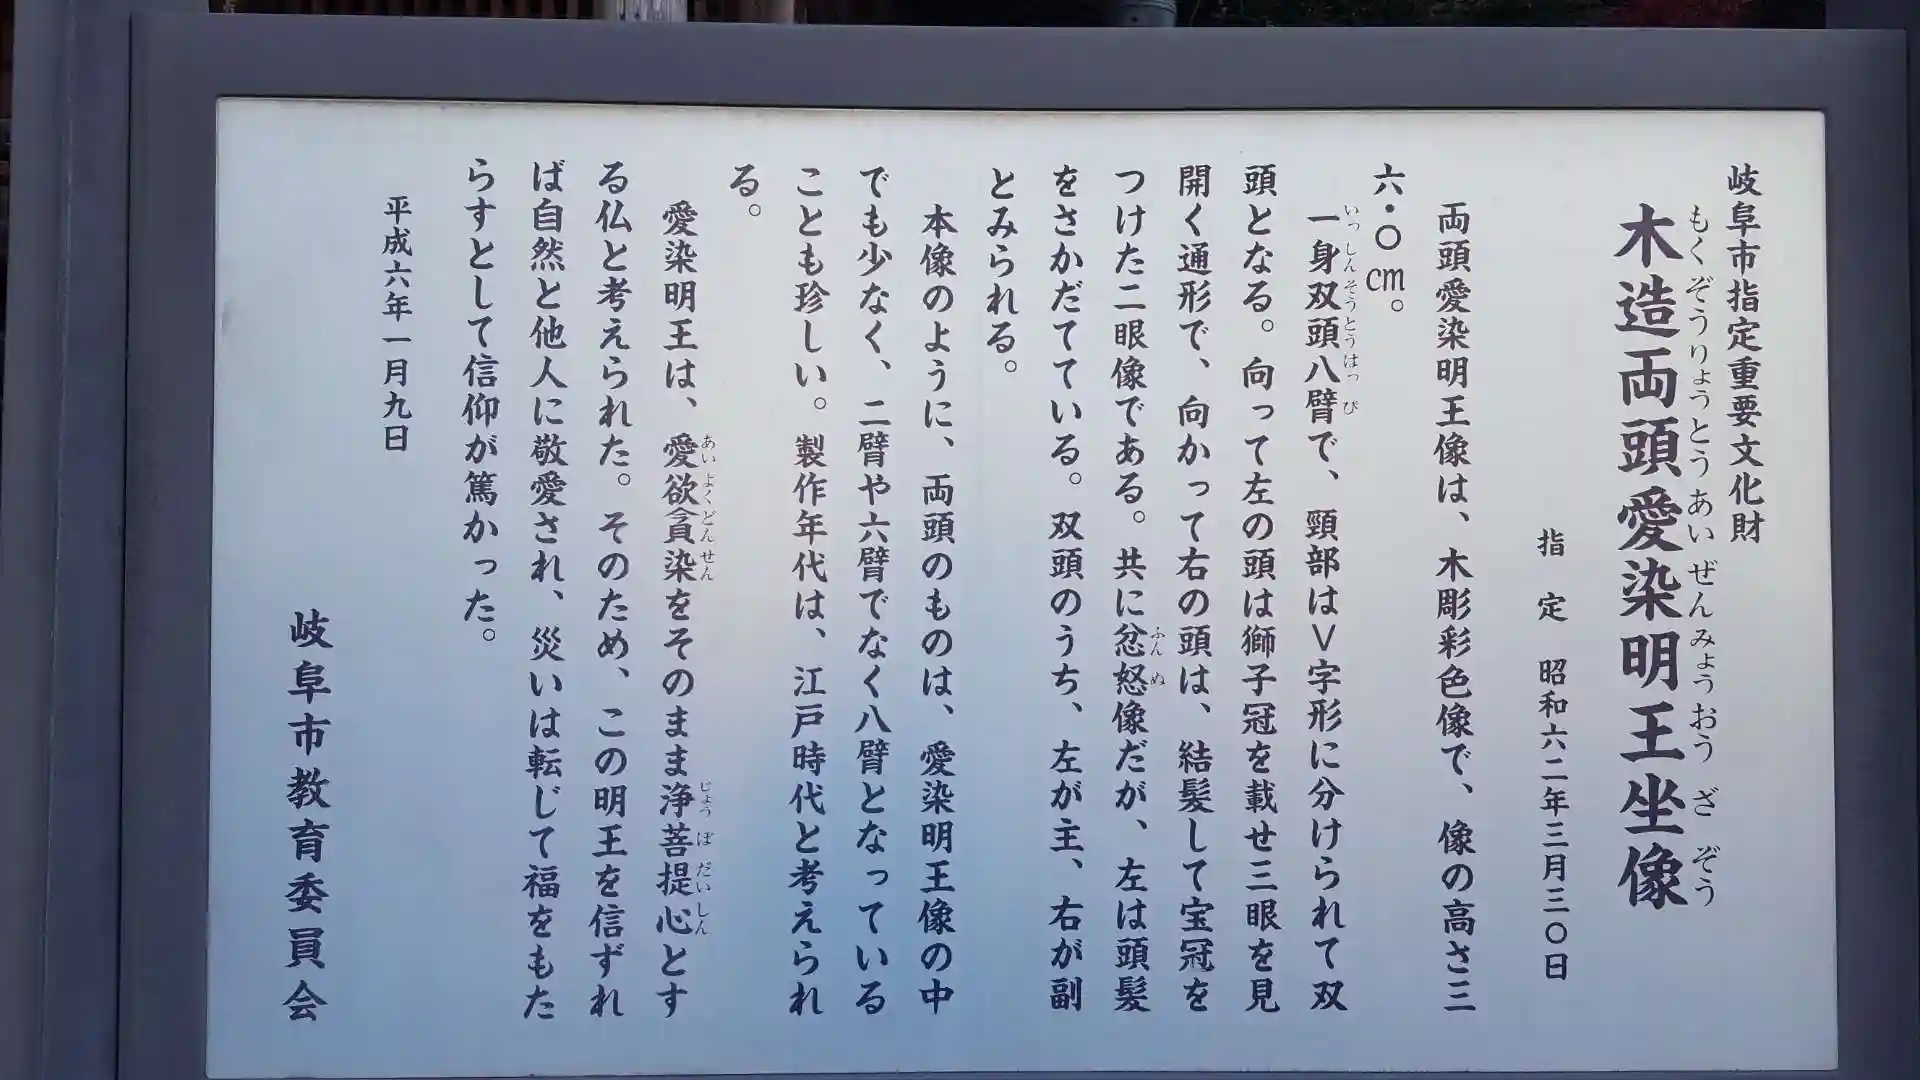 岐阜市指定重要文化財
木造両頭愛染明王坐像
もくぞうりょうとうあいぜんみょうおうざぞう
指定 昭和六二年三月三〇日
両頭愛染明王像は、木彫彩色像で、像の高さ三
六・〇cm。
一身双頭八臂で、頸部はV字形に分けられて双
いっしんそうとうはっぴ
頭となる。向って左の頭は獅子冠を載せ三眼を見
開く通形で、向かって右の頭は、結髪して宝冠を
つけた二眼像である。共に忿怒像だが、左は頭髪
ふんぬ
をさかだてている。双頭のうち、左が主、右が副
とみられる。
本像のように、両頭のものは、愛染明王像の中
でも少なく、二臂や六臂でなく八臂となっている
ことも珍しい。製作年代は、江戸時代と考えられ
る。
愛染明王は、愛欲貪染をそのまま浄菩提心とす
あいよくどんせん じょうぼだいしん
る仏と考えられた。そのため、この明王を信ずれ
ば自然と他人に敬愛され、災いは転じて福をもた
らすとして信仰が篤かった。
平成六年一月九日
岐阜市教育委員会